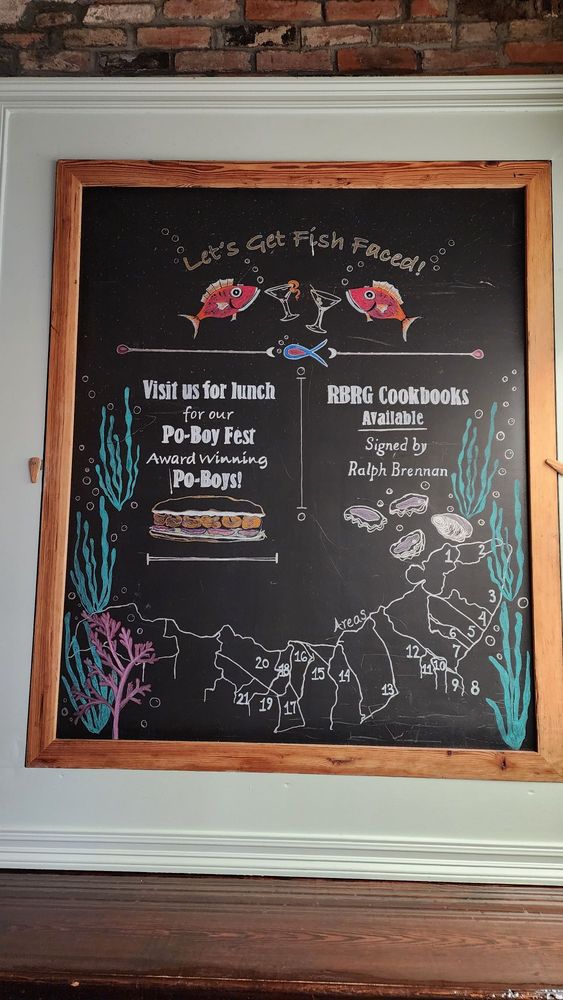 Let's Get Fish Faced!
Visit us for lunch
for our
Po-Boy Fest
Award Winning
Po-Boys!
RBRG Cookbooks
Available
Signed by
Ralph Brennan
Areas
1
2
3
4
5
6
7
8
9
10
11
12
13
14
15
16
17
18
19
20
21